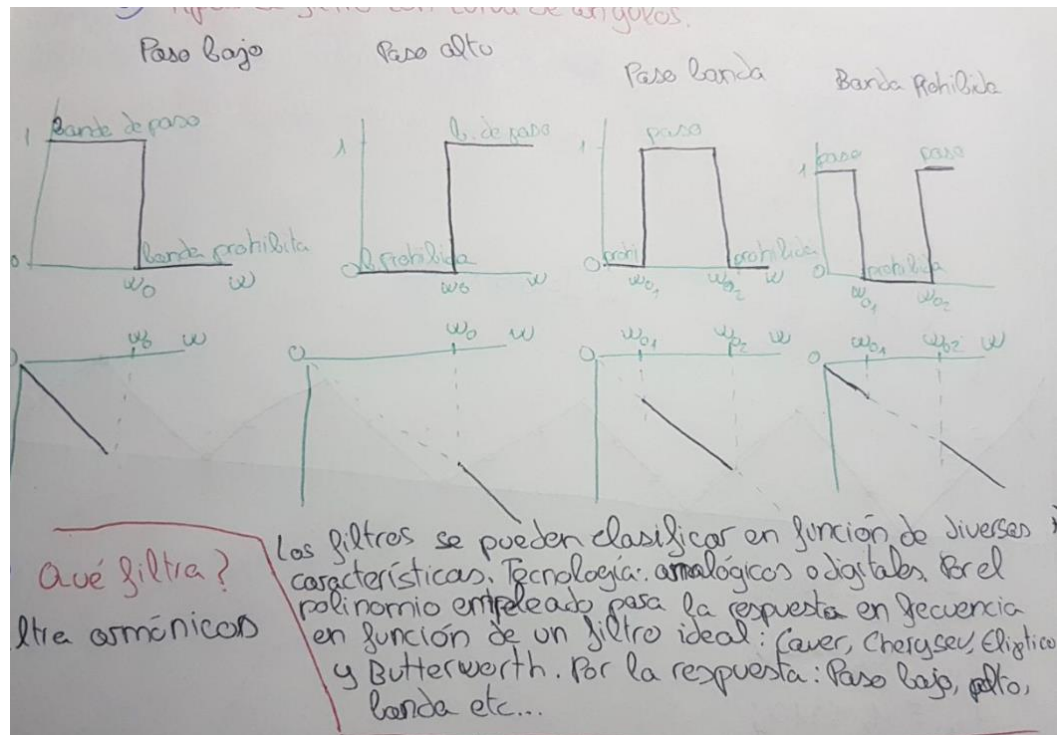 de filtro con curva de ángulos.
Paso bajo
Paso alto
Paso banda
Banda Prohibida
1 Banda de paso
1 b. de paso
1 paso
1 paso paso
0 banda prohibita
ω0 ω
0 b. Prohibida
ω0 ω
0 prohi prohibida
ω01 ω02 ω
0 prohibida
ω01 ω02
0 ω0 ω
0 ω0 ω
0 ω01 ω02 ω
0 ω01 ω02 ω
Qué filtra?
ltra armónicos
Los filtros se pueden clasificar en función de diverses
características. Tecnología: analógicos o digitales. Por el
polinomio empeleado pasa la respuesta en frecuencia
en función de un filtro ideal: Cauer, Cheryser, Elíptico
y Butterworth. Por la respuesta: Paso bajo, alto,
banda etc...